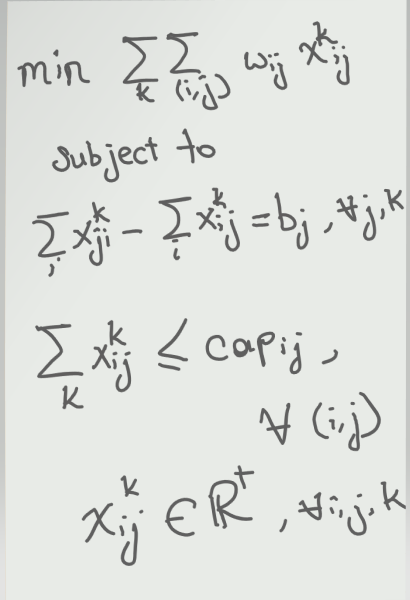 min ∑_k ∑_(i,j) w_ij x_ij^k
subject to
∑_i x_ji^k − ∑_i x_ij^k = b_j , ∀j,k
∑_k x_ij^k ≤ cap_ij ,
∀ (i,j)
x_ij^k ∈ R^+ , ∀i,j,k